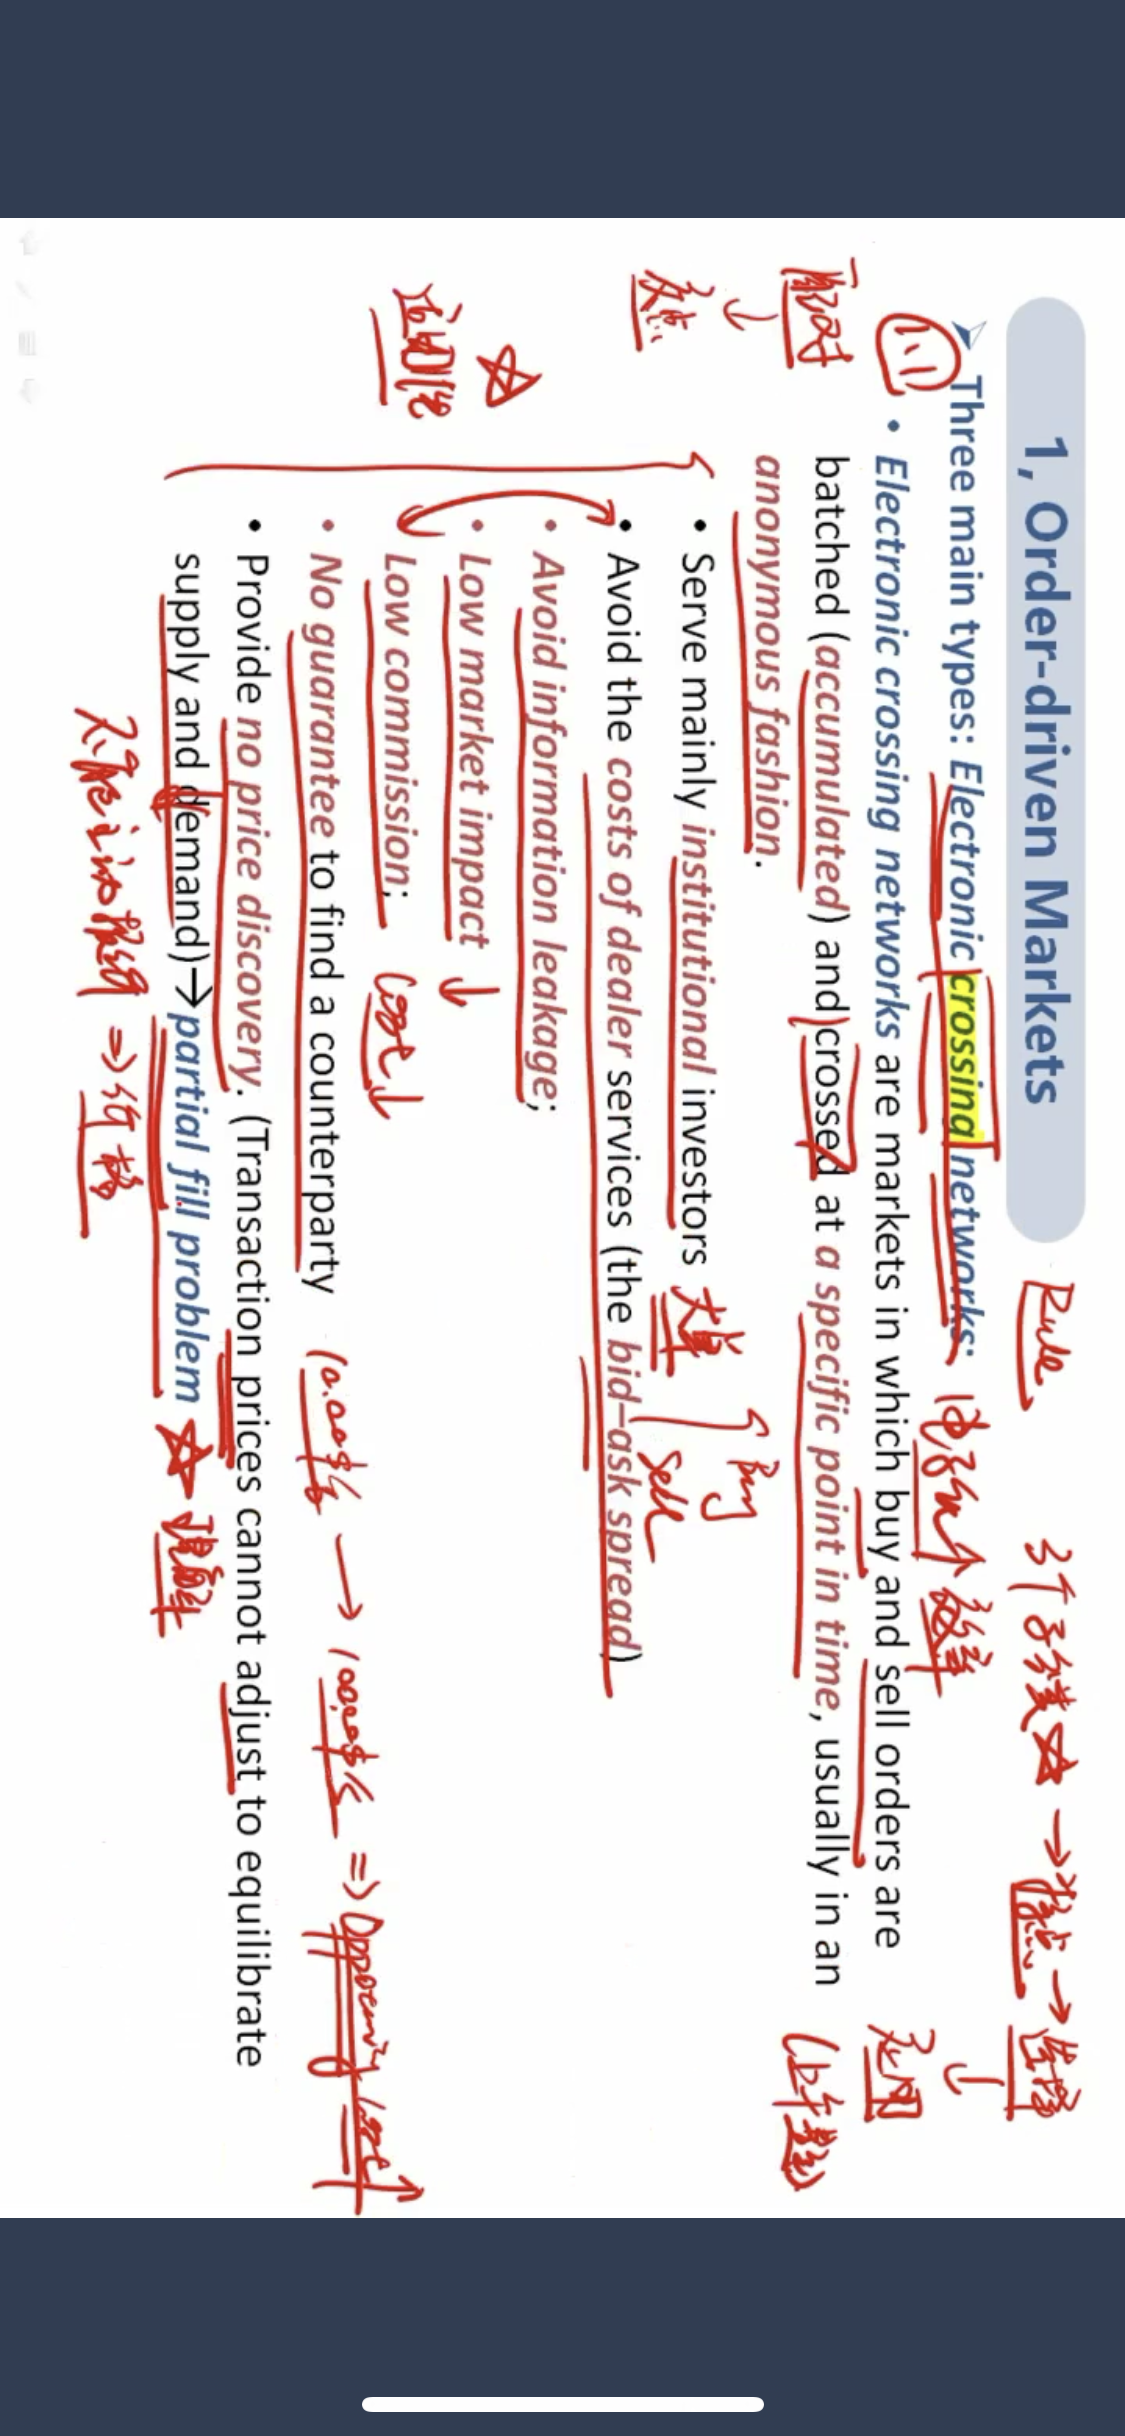 1, Order-driven Markets
Rule
3个分类 → 特点 → 选择
↓
Three main types: Electronic crossing networks:
1.1
• Electronic crossing networks are markets in which buy and sell orders are
配对
↓
batched (accumulated) and crossed at a specific point in time, usually in an
anonymous fashion.
• Serve mainly institutional investors
大单
Buy
Sell
• Avoid the costs of dealer services (the bid–ask spread)
• Avoid information leakage;
• Low market impact ↓
Low commission;
Cost ↓
• No guarantee to find a counterparty
→ ⇒ Opportunity Cost ↑
• Provide no price discovery. (Transaction prices cannot adjust to equilibrate
supply and demand)→partial fill problem
理解
⇒ 价格